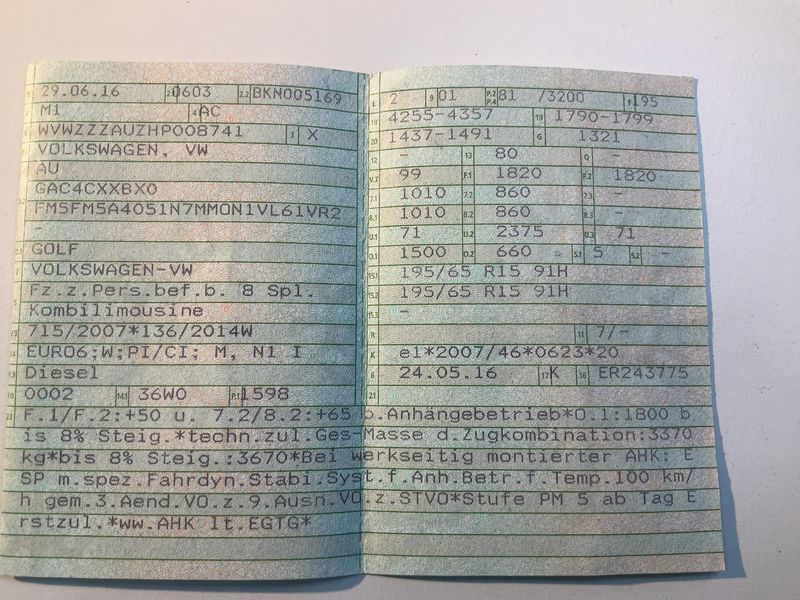 29.06.16 2.1 0603 2.2 BKN005169
M1 4 AC
WVWZZZAUZHP008741 3 X
VOLKSWAGEN, VW
AU
GAC4CXXBX0
FM5FM5A4051N7MMON1VL61VR2
-
GOLF
VOLKSWAGEN-VW
Fz.z.Pers.bef.b. 8 Spl.
Kombilimousine
715/2007*136/2014W
EURO6;W;PI/CI; M, N1 I
Diesel
10 0002 14.1 36W0 P.1 1598
L 2 9 01 P.2 P.4 81 /3200 T 195
18 4255-4357 19 1790-1799
20 1437-1491 G 1321
12 - 13 80 Q -
V.7 99 F.1 1820 F.2 1820
7.1 1010 7.2 860 7.3 -
8.1 1010 8.2 860 8.3 -
U.1 71 U.2 2375 U.3 71
O.1 1500 O.2 660 S.1 5 S.2 -
15.1 195/65 R15 91H
15.2 195/65 R15 91H
15.3 -
R 11 7/-
K e1*2007/46*0623*20
6 24.05.16 17 K 16 ER243775
21
22 F.1/F.2:+50 u. 7.2/8.2:+65 b.Anhängebetrieb*O.1:1800 b
is 8% Steig.*techn.zul.Ges-Masse d.Zugkombination:3370
kg*bis 8% Steig.:3670*Bei werkseitig montierter AHK: E
SP m.spez.Fahrdyn.Stabi.Syst.f.Anh.Betr.f.Temp.100 km/
h gem.3.Aend.VO.z.9.Ausn.VO.z.STVO*Stufe PM 5 ab Tag E
rstzul.*ww.AHK lt.EGTG*